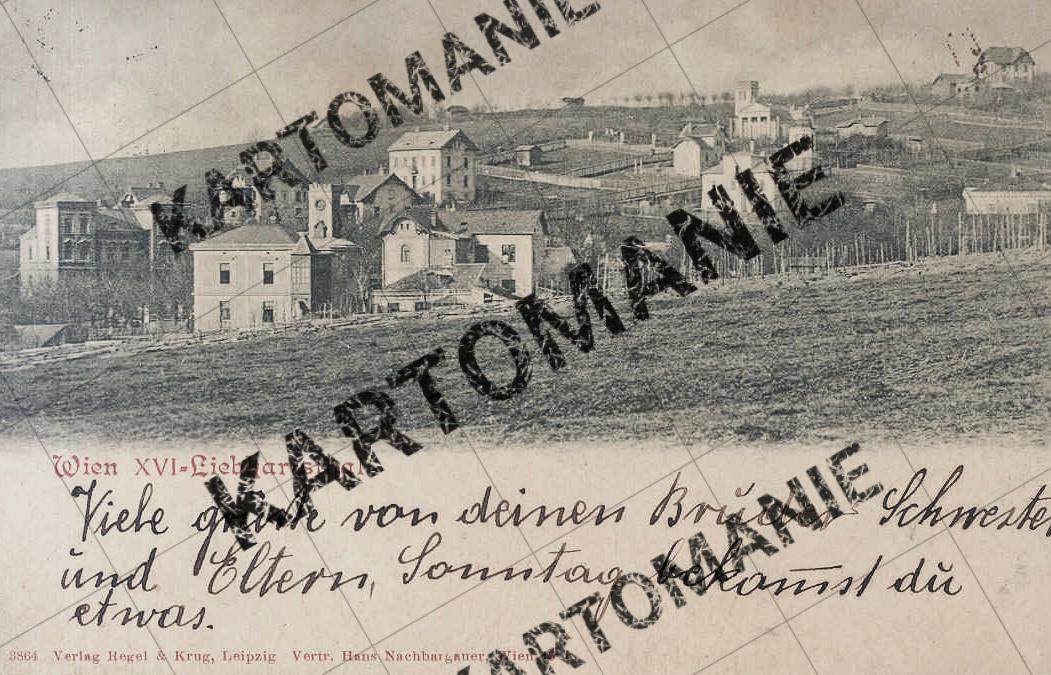 KARTOMANIE
KARTOMANIE
KARTOMANIE
Wien XVI-Liebhartsthal
Viele grüße von deinen Bruder Schwester
und Eltern, Sonntag bekom̅st du
etwas.
3864 Verlag Regel & Krug, Leipzig Vertr. Hans Nachbargauer, Wien